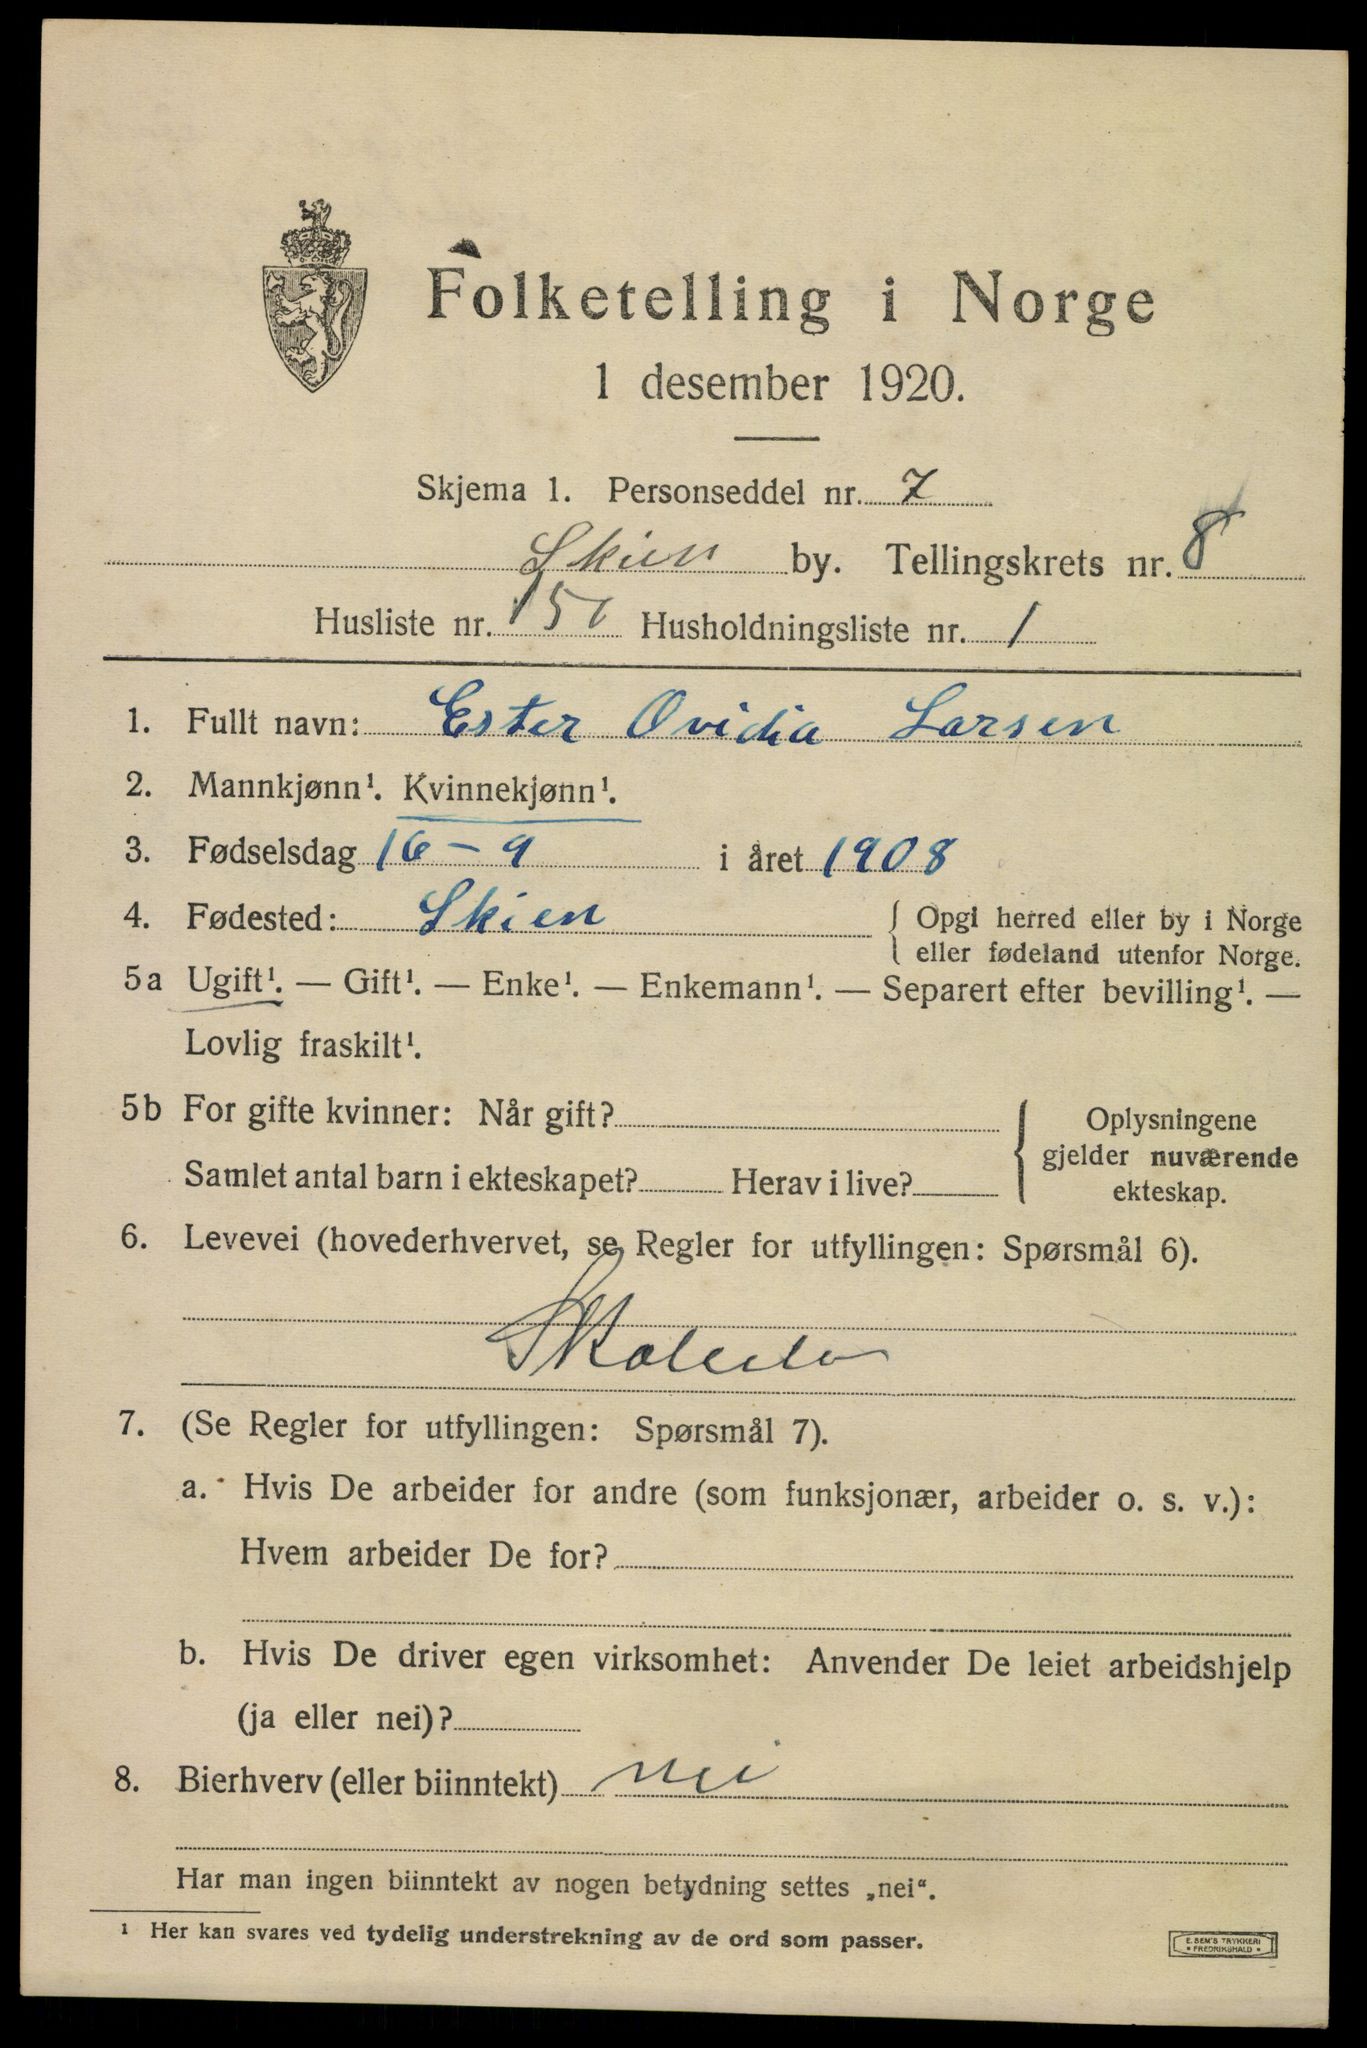 Folketelling i Norge
1 desember 1920.
Skjema 1. Personseddel nr. 7
Skien by. Tellingskrets nr. 8
Husliste nr. 151 Husholdningsliste nr. 1
1. Fullt navn: Ester Ovidia Larsen
2. Mannkjønn¹. Kvinnekjønn¹.
3. Fødselsdag 16-9 i året 1908
4. Fødested: Skien { Opgi herred eller by i Norge
eller fødeland utenfor Norge.
5a Ugift¹. — Gift¹. — Enke¹. — Enkemann¹. — Separert efter bevilling¹. —
Lovlig fraskilt¹.
5b For gifte kvinner: Når gift?
Samlet antal barn i ekteskapet? Herav i live?
{ Oplysningene
gjelder nuværende
ekteskap.
6. Levevei (hovederhvervet, se Regler for utfyllingen: Spørsmål 6).
7. (Se Regler for utfyllingen: Spørsmål 7).
a. Hvis De arbeider for andre (som funksjonær, arbeider o. s. v.):
Hvem arbeider De for?
b. Hvis De driver egen virksomhet: Anvender De leiet arbeidshjelp
(ja eller nei)?
8. Bierhverv (eller biinntekt) nei
Har man ingen biinntekt av nogen betydning settes „nei“.
¹ Her kan svares ved tydelig understrekning av de ord som passer.
E. SEM'S TRYKKERI
* FREDRIKSHALD *